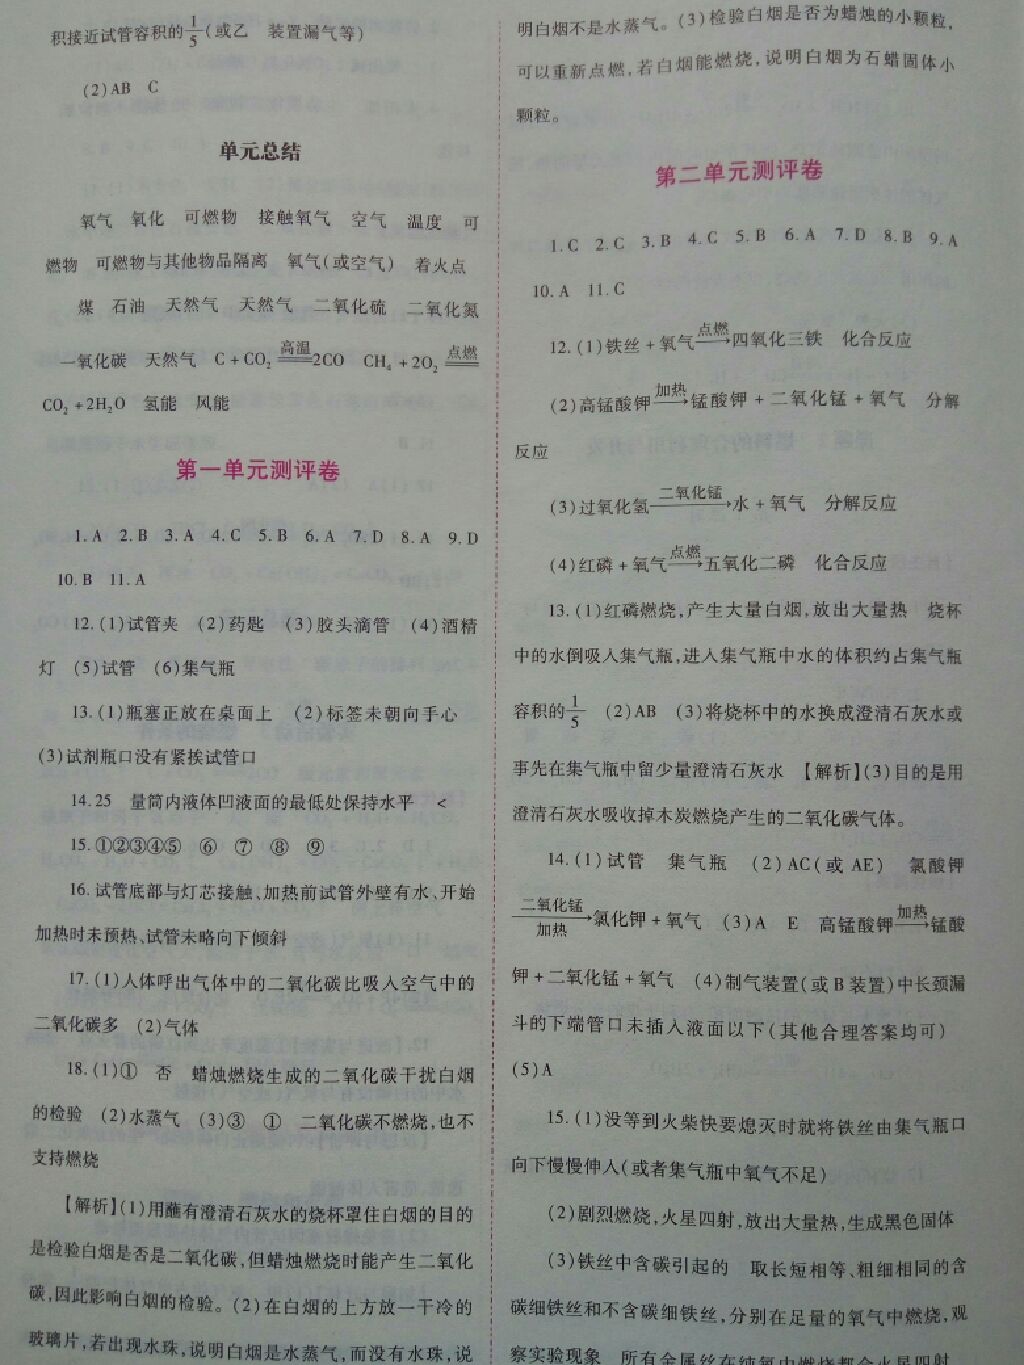 积接近试管容积的1/5(或乙 装置漏气等)
(2)AB C
单元总结
氧气 氧化 可燃物 接触氧气 空气 温度 可
燃物 可燃物与其他物品隔离 氧气(或空气) 着火点
煤 石油 天然气 天然气 二氧化硫 二氧化氮
一氧化碳 天然气 C+CO₂ 高温══ 2CO CH₄+2O₂ 点燃══
CO₂+2H₂O 氢能 风能
第一单元测评卷
1.A 2.B 3.A 4.C 5.B 6.A 7.D 8.A 9.D
10.B 11.A
12.(1)试管夹 (2)药匙 (3)胶头滴管 (4)酒精
灯 (5)试管 (6)集气瓶
13.(1)瓶塞正放在桌面上 (2)标签未朝向手心
(3)试剂瓶口没有紧挨试管口
14.25 量筒内液体凹液面的最低处保持水平 <
15.①②③④⑤ ⑥ ⑦ ⑧ ⑨
16.试管底部与灯芯接触、加热前试管外壁有水、开始
加热时未预热、试管未略向下倾斜
17.(1)人体呼出气体中的二氧化碳比吸入空气中的
二氧化碳多 (2)气体
18.(1)① 否 蜡烛燃烧生成的二氧化碳干扰白烟
的检验 (2)水蒸气 (3)③ ① 二氧化碳不燃烧,也不
支持燃烧
【解析】(1)用蘸有澄清石灰水的烧杯罩住白烟的目的
是检验白烟是否是二氧化碳,但蜡烛燃烧时能产生二氧化
碳,因此影响白烟的检验。(2)在白烟的上方放一干冷的
玻璃片,若出现水珠,说明白烟是水蒸气,而没有水珠,说
明白烟不是水蒸气。(3)检验白烟是否为蜡烛的小颗粒,
可以重新点燃,若白烟能燃烧,说明白烟为石蜡固体小
颗粒。
第二单元测评卷
1.C 2.C 3.B 4.C 5.B 6.A 7.D 8.B 9.A
10.A 11.C
12.(1)铁丝+氧气 点燃→ 四氧化三铁 化合反应
(2)高锰酸钾 加热→ 锰酸钾+二氧化锰+氧气 分解
反应
(3)过氧化氢 二氧化锰→ 水+氧气 分解反应
(4)红磷+氧气 点燃→ 五氧化二磷 化合反应
13.(1)红磷燃烧,产生大量白烟,放出大量热 烧杯
中的水倒吸入集气瓶,进入集气瓶中水的体积约占集气瓶
容积的1/5 (2)AB (3)将烧杯中的水换成澄清石灰水或
事先在集气瓶中留少量澄清石灰水 【解析】(3)目的是用
澄清石灰水吸收掉木炭燃烧产生的二氧化碳气体。
14.(1)试管 集气瓶 (2)AC(或 AE) 氯酸钾
二氧化锰/加热→ 氯化钾+氧气 (3)A E 高锰酸钾 加热→ 锰酸
钾+二氧化锰+氧气 (4)制气装置(或B装置)中长颈漏
斗的下端管口未插入液面以下(其他合理答案均可)
(5)A
15.(1)没等到火柴快要熄灭时就将铁丝由集气瓶口
向下慢慢伸人(或者集气瓶中氧气不足)
(2)剧烈燃烧,火星四射,放出大量热,生成黑色固体
(3)铁丝中含碳引起的 取长短相等、粗细相同的含
碳细铁丝和不含碳细铁丝,分别在足量的氧气中燃烧,观
察实验现象 所有金属丝在纯氧中燃烧都会火星四射